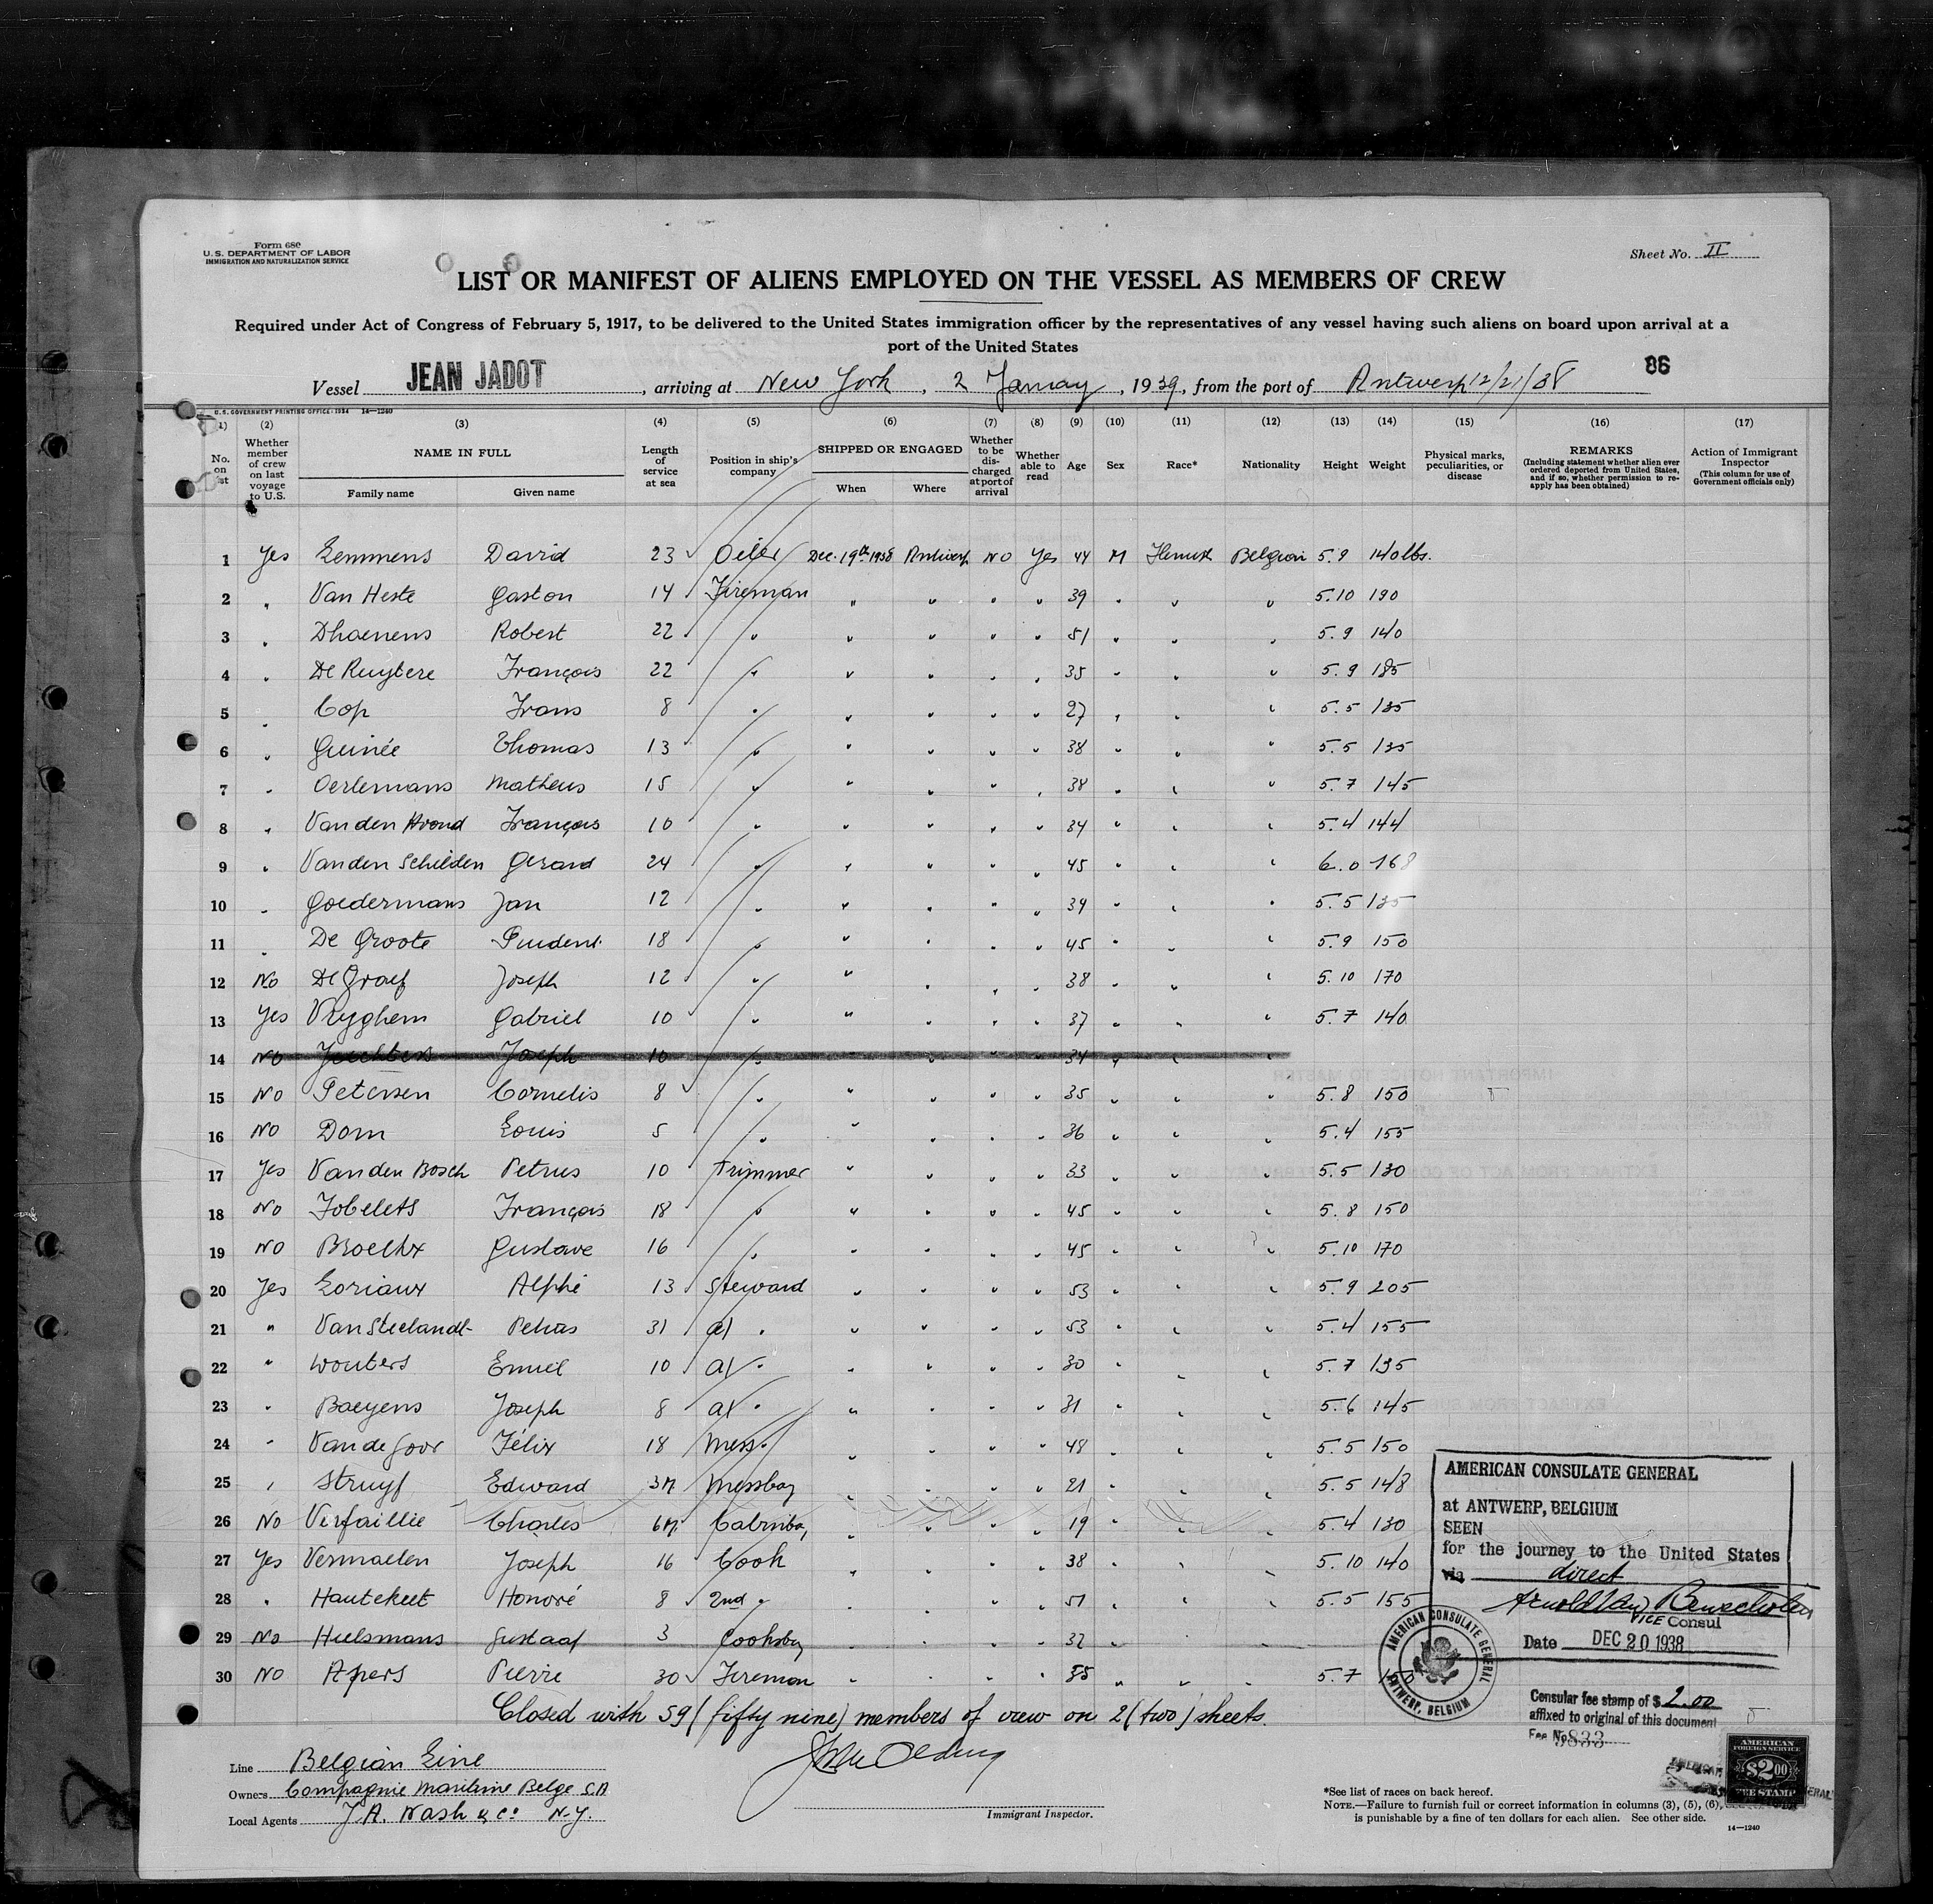 Form 680
U. S. DEPARTMENT OF LABOR
IMMIGRATION AND NATURALIZATION SERVICE
Sheet No. II
LIST OR MANIFEST OF ALIENS EMPLOYED ON THE VESSEL AS MEMBERS OF CREW
Required under Act of Congress of February 5, 1917, to be delivered to the United States immigration officer by the representatives of any vessel having such aliens on board upon arrival at a
port of the United States
86
Vessel JEAN JADOT, arriving at New York, 2 January, 1939, from the port of Antwerp 12/21/38
U. S. GOVERNMENT PRINTING OFFICE: 1934 14—1240
(1) (2) (3) (4) (5) (6) (7) (8) (9) (10) (11) (12) (13) (14) (15) (16) (17)
No. on list
Whether member of crew on last voyage to U.S.
NAME IN FULL
Family name Given name
Length of service at sea
Position in ship's company
SHIPPED OR ENGAGED
When Where
Whether to be discharged at port of arrival
Whether able to read
Age
Sex
Race*
Nationality
Height
Weight
Physical marks, peculiarities, or disease
REMARKS
(Including statement whether alien ever ordered deported from United States, and if so, whether permission to re-apply has been obtained)
Action of Immigrant Inspector
(This column for use of Government officials only)
1 Yes Lemmens David 23 Oiler Dec. 19th 1938 Antwerp No Yes 44 M Flemish Belgian 5.9 140 lbs.
2 " Van Heste Gaston 14 Fireman " " " " 39 " " " 5.10 190
3 " Dhaenens Robert 22 " " " " " 51 " " " 5.9 140
4 " De Ruytere François 22 " " " " " 35 " " " 5.9 185
5 " Cop Frans 8 " " " " " 27 " " " 5.5 135
6 " Guinée Thomas 13 " " " " " 38 " " " 5.5 135
7 " Oerlemans Matheus 15 " " " " " 38 " " " 5.7 145
8 " Van den François 10 " " " " " 34 " " " 5.4 144
9 " Van den Schilden Gerard 24 " " " " " 45 " " " 6.0 168
10 " Goedermans Jan 12 " " " " " 39 " " " 5.5 135
11 " De Groote Prudent 18 " " " " " 45 " " " 5.9 150
12 No De Graef Joseph 12 " " " " " 38 " " " 5.10 170
13 Yes Vryghem Gabriel 10 " " " " " 37 " " " 5.7 140
14 No Joseph 10 " " " " " 34 " "
15 No Petersen Cornelis 8 " " " " " 35 " " " 5.8 150
16 No Dom Louis 5 " " " " " 36 " " " 5.4 155
17 Yes Van den Bosch Petrus 10 Trimmer " " " " 33 " " " 5.5 130
18 No Jobelets François 18 " " " " " 45 " " " 5.8 150
19 No Broeckx Gustave 16 " " " " " 45 " " " 5.10 170
20 Yes Loriaux Alphé 13 Steward " " " " 53 " " " 5.9 205
21 " Van Steelandt Petrus 31 " " " " " 53 " " " 5.4 155
22 " Wouters Emiel 10 " " " " " 30 " " " 5.7 135
23 " Baeyens Joseph 8 " " " " " 31 " " " 5.6 145
24 " Van de Goor Félix 18 Mess " " " " " 48 " " " 5.5 150
25 " Struyf Edward 3M Messboy " " " " 21 " " " 5.5 148
26 No Verfaillie Charles 6M " " " " 19 " " " 5.4 130
27 Yes Vermaelen Joseph 16 Cook " " " " 38 " " " 5.10 140
28 " Hautekeet Honoré 8 2nd " " " " " 51 " " " 5.5 155
29 No Huelsmans Gustaaf 3 Cooksboy " " " " 32 " " "
30 No Apers Pierre 30 Fireman " " " " " " " 5.7 150
Closed with 59 (fifty nine) members of crew on 2 (two) sheets.
AMERICAN CONSULATE GENERAL
at ANTWERP, BELGIUM
SEEN
for the journey to the United States
via direct
Arnold Van
VICE Consul
Date DEC 20 1938
AMERICAN CONSULATE GENERAL ANTWERP, BELGIUM
Consular fee stamp of $ 2.00
affixed to original of this document
Fee No. 5833
AMERICAN
FOREIGN SERVICE
$2.00
FEE STAMP
Line Belgian Line
Owners Compagnie Maritime Belge S.A
Local Agents J.A. Nash & Co N-Y.
Immigrant Inspector.
*See list of races on back hereof.
NOTE.—Failure to furnish full or correct information in columns (3), (5), (6),
is punishable by a fine of ten dollars for each alien. See other side.
14—1240